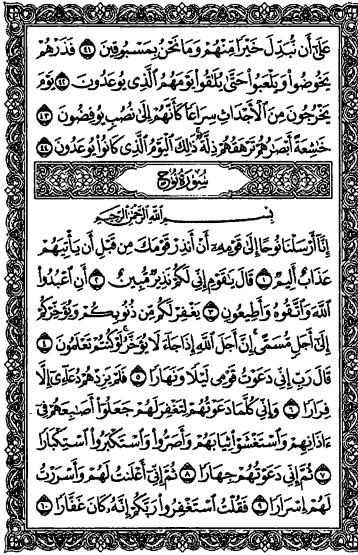 عَلَىٰٓ أَن نُّبَدِّلَ خَيْرًا مِّنْهُمْ وَمَا نَحْنُ بِمَسْبُوقِينَ ٤١ فَذَرْهُمْ
يَخُوضُوا۟ وَيَلْعَبُوا۟ حَتَّىٰ يُلَٰقُوا۟ يَوْمَهُمُ ٱلَّذِى يُوعَدُونَ ٤٢ يَوْمَ
يَخْرُجُونَ مِنَ ٱلْأَجْدَاثِ سِرَاعًا كَأَنَّهُمْ إِلَىٰ نُصُبٍ يُوفِضُونَ ٤٣
خَٰشِعَةً أَبْصَٰرُهُمْ تَرْهَقُهُمْ ذِلَّةٌ ذَٰلِكَ ٱلْيَوْمُ ٱلَّذِى كَانُوا۟ يُوعَدُونَ ٤٤
سُورَةُ نُوحٍ
بِسْمِ ٱللَّهِ ٱلرَّحْمَٰنِ ٱلرَّحِيمِ
إِنَّآ أَرْسَلْنَا نُوحًا إِلَىٰ قَوْمِهِۦٓ أَنْ أَنذِرْ قَوْمَكَ مِن قَبْلِ أَن يَأْتِيَهُمْ
عَذَابٌ أَلِيمٌ ١ قَالَ يَٰقَوْمِ إِنِّى لَكُمْ نَذِيرٌ مُّبِينٌ ٢ أَنِ ٱعْبُدُوا۟
ٱللَّهَ وَٱتَّقُوهُ وَأَطِيعُونِ ٣ يَغْفِرْ لَكُم مِّن ذُنُوبِكُمْ وَيُؤَخِّرْكُمْ
إِلَىٰٓ أَجَلٍ مُّسَمًّى إِنَّ أَجَلَ ٱللَّهِ إِذَا جَآءَ لَا يُؤَخَّرُ لَوْ كُنتُمْ تَعْلَمُونَ ٤
قَالَ رَبِّ إِنِّى دَعَوْتُ قَوْمِى لَيْلًا وَنَهَارًا ٥ فَلَمْ يَزِدْهُمْ دُعَآءِىٓ إِلَّا
فِرَارًا ٦ وَإِنِّى كُلَّمَا دَعَوْتُهُمْ لِتَغْفِرَ لَهُمْ جَعَلُوٓا۟ أَصَٰبِعَهُمْ فِىٓ
ءَاذَانِهِمْ وَٱسْتَغْشَوْا۟ ثِيَابَهُمْ وَأَصَرُّوا۟ وَٱسْتَكْبَرُوا۟ ٱسْتِكْبَارًا
٧ ثُمَّ إِنِّى دَعَوْتُهُمْ جِهَارًا ٨ ثُمَّ إِنِّىٓ أَعْلَنتُ لَهُمْ وَأَسْرَرْتُ
لَهُمْ إِسْرَارًا ٩ فَقُلْتُ ٱسْتَغْفِرُوا۟ رَبَّكُمْ إِنَّهُۥ كَانَ غَفَّارًا ١٠